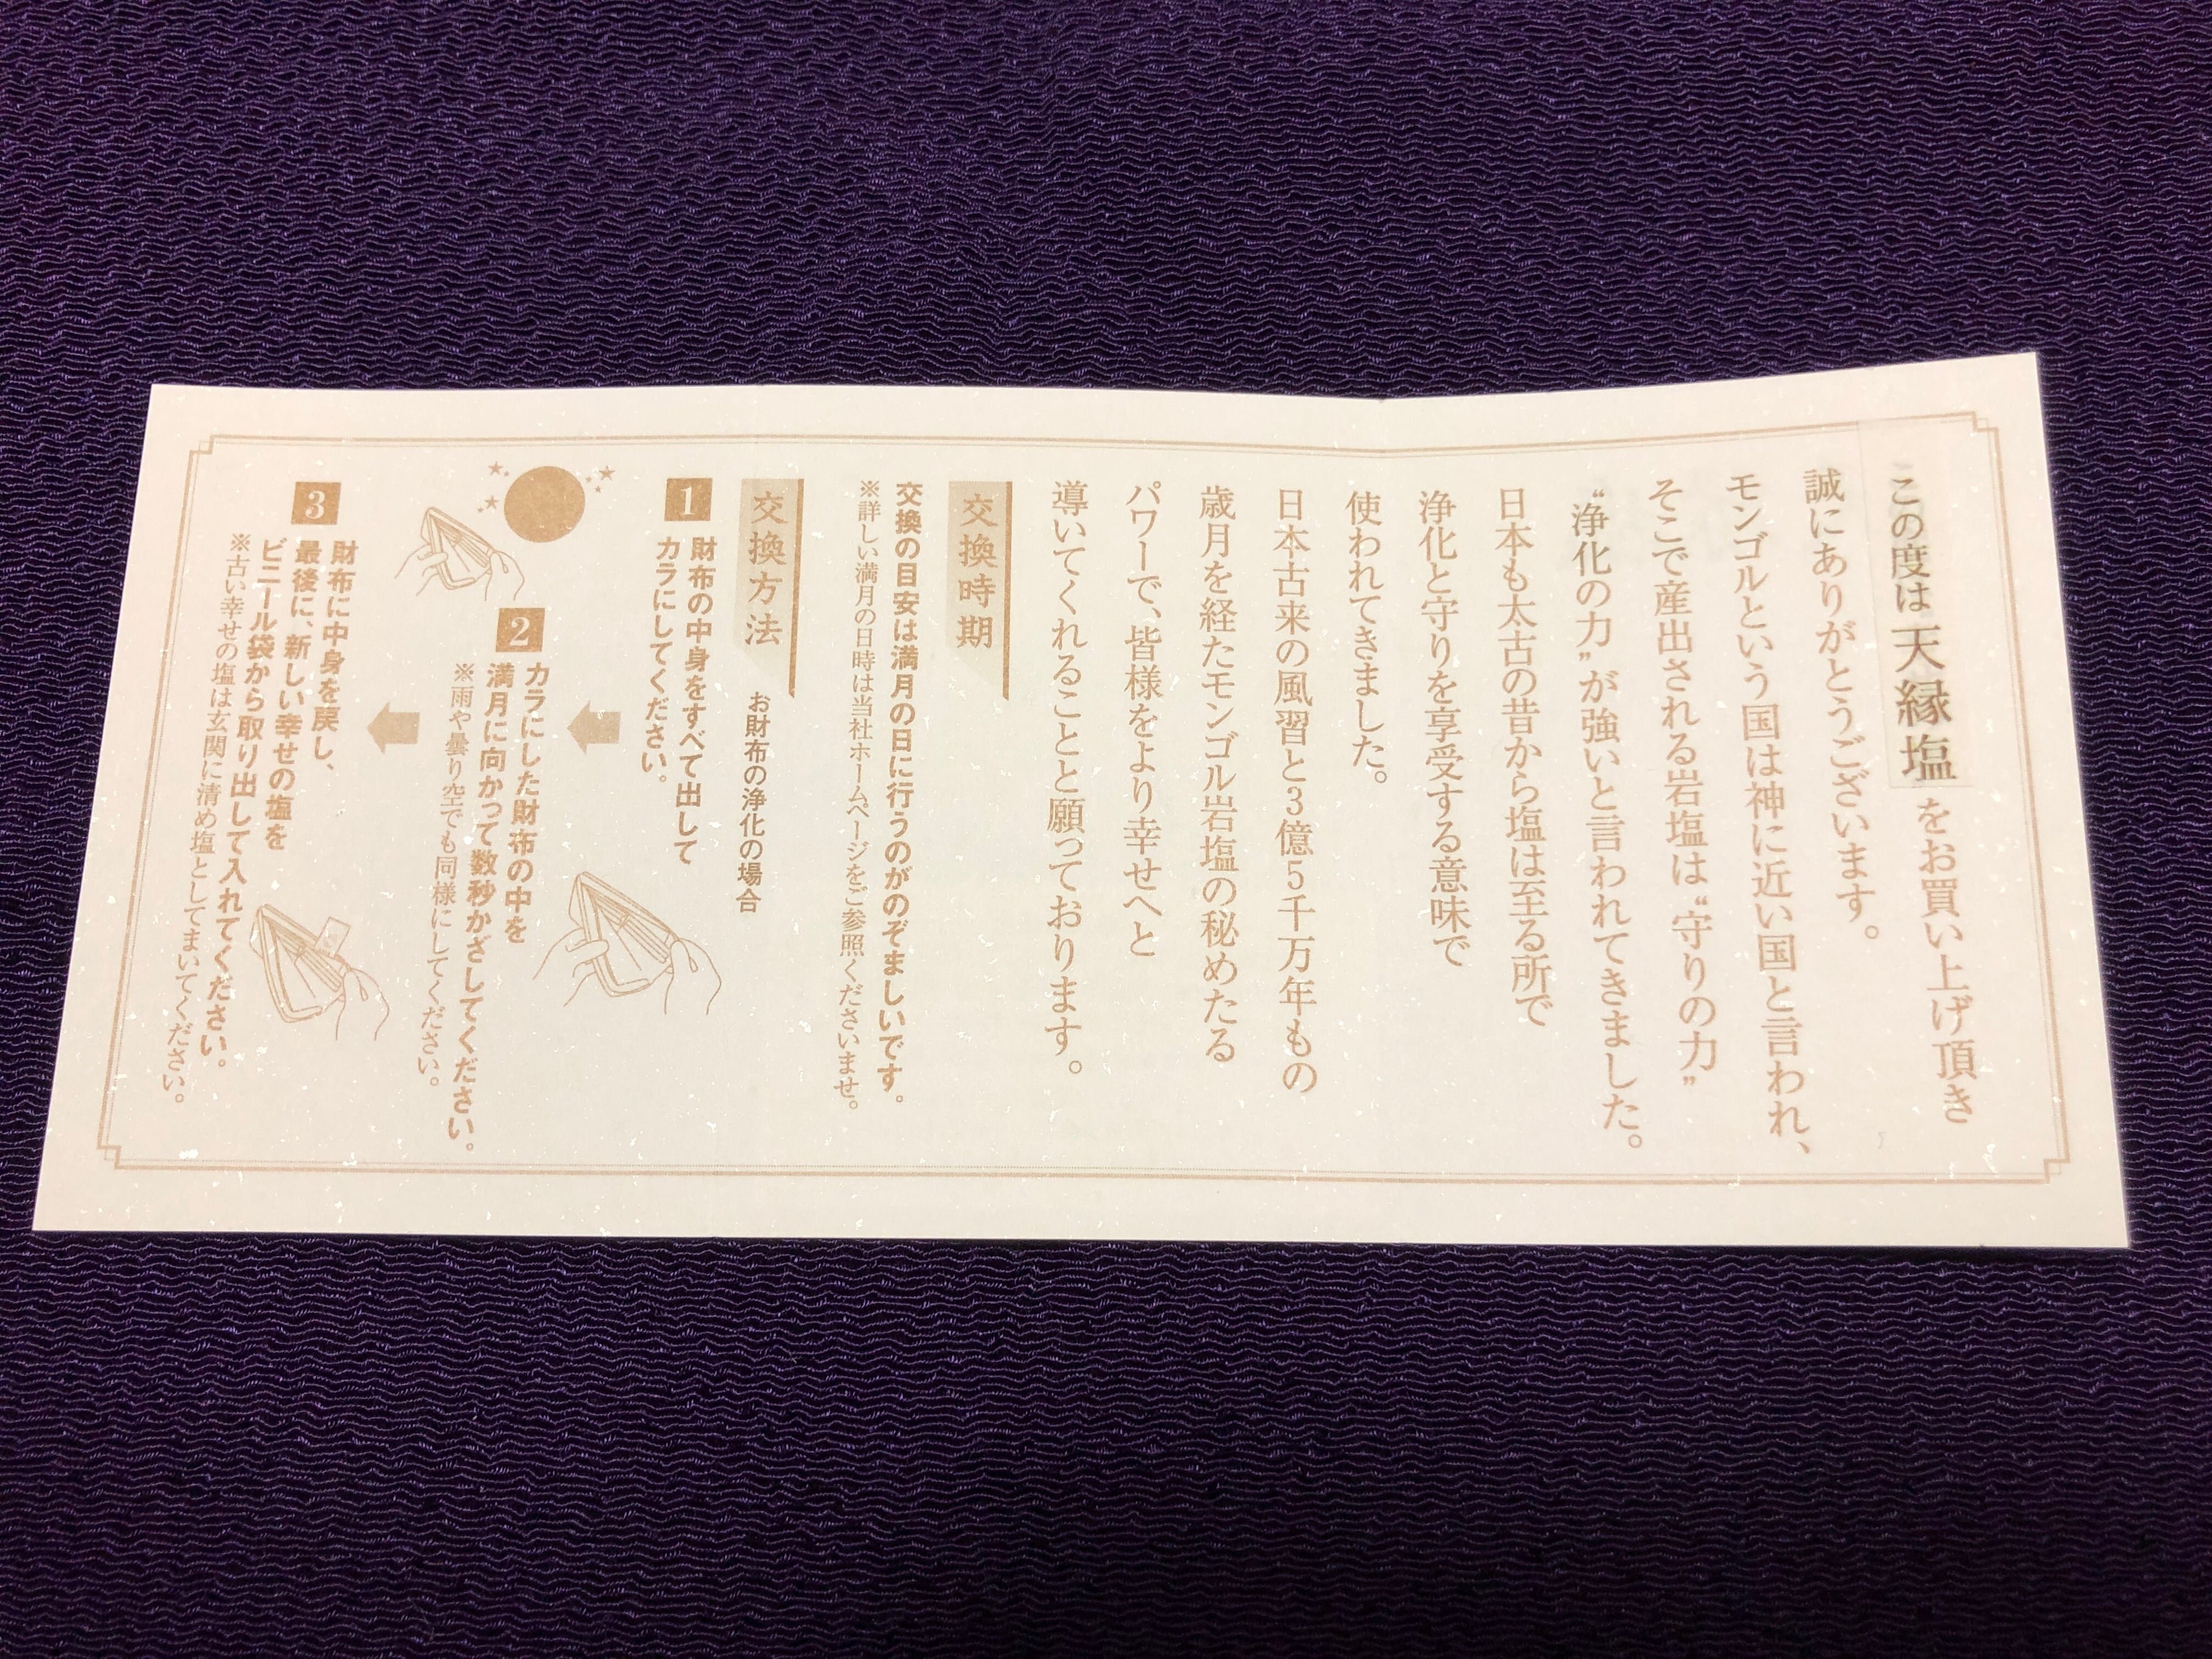 この度は天縁塩をお買い上げ頂き
誠にありがとうございます。
モンゴルという国は神に近い国と言われ、
そこで産出される岩塩は“守りの力”
“浄化の力”が強いと言われてきました。
日本も太古の昔から塩は至る所で
浄化と守りを享受する意味で
使われてきました。
日本古来の風習と3億5千万年もの
歳月を経たモンゴル岩塩の秘めたる
パワーで、皆様をより幸せへと
導いてくれることと願っております。
交換時期
交換の目安は満月の日に行うのがのぞましいです。
※詳しい満月の日時は当社ホームページをご参照くださいませ。
交換方法 お財布の浄化の場合
1 財布の中身をすべて出して
カラにしてください。
2 カラにした財布の中を
満月に向かって数秒かざしてください。
※雨や曇り空でも同様にしてください。
3 財布に中身を戻し、
最後に、新しい幸せの塩を
ビニール袋から取り出して入れてください。
※古い幸せの塩は玄関に清め塩としてまいてください。